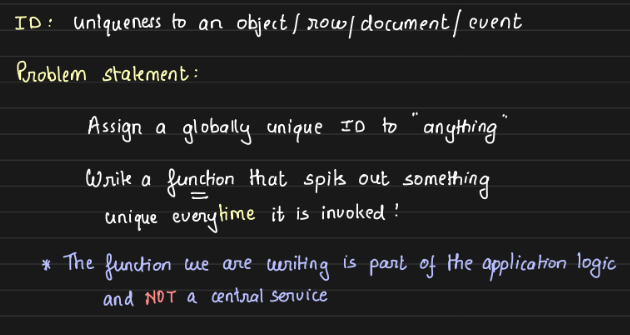 ID: uniqueness to an object / row / document / event
Problem statement:
Assign a globally unique ID to "anything"
Write a function that spits out something
unique everytime it is invoked!
* The function we are writing is part of the application logic
and NOT a central service